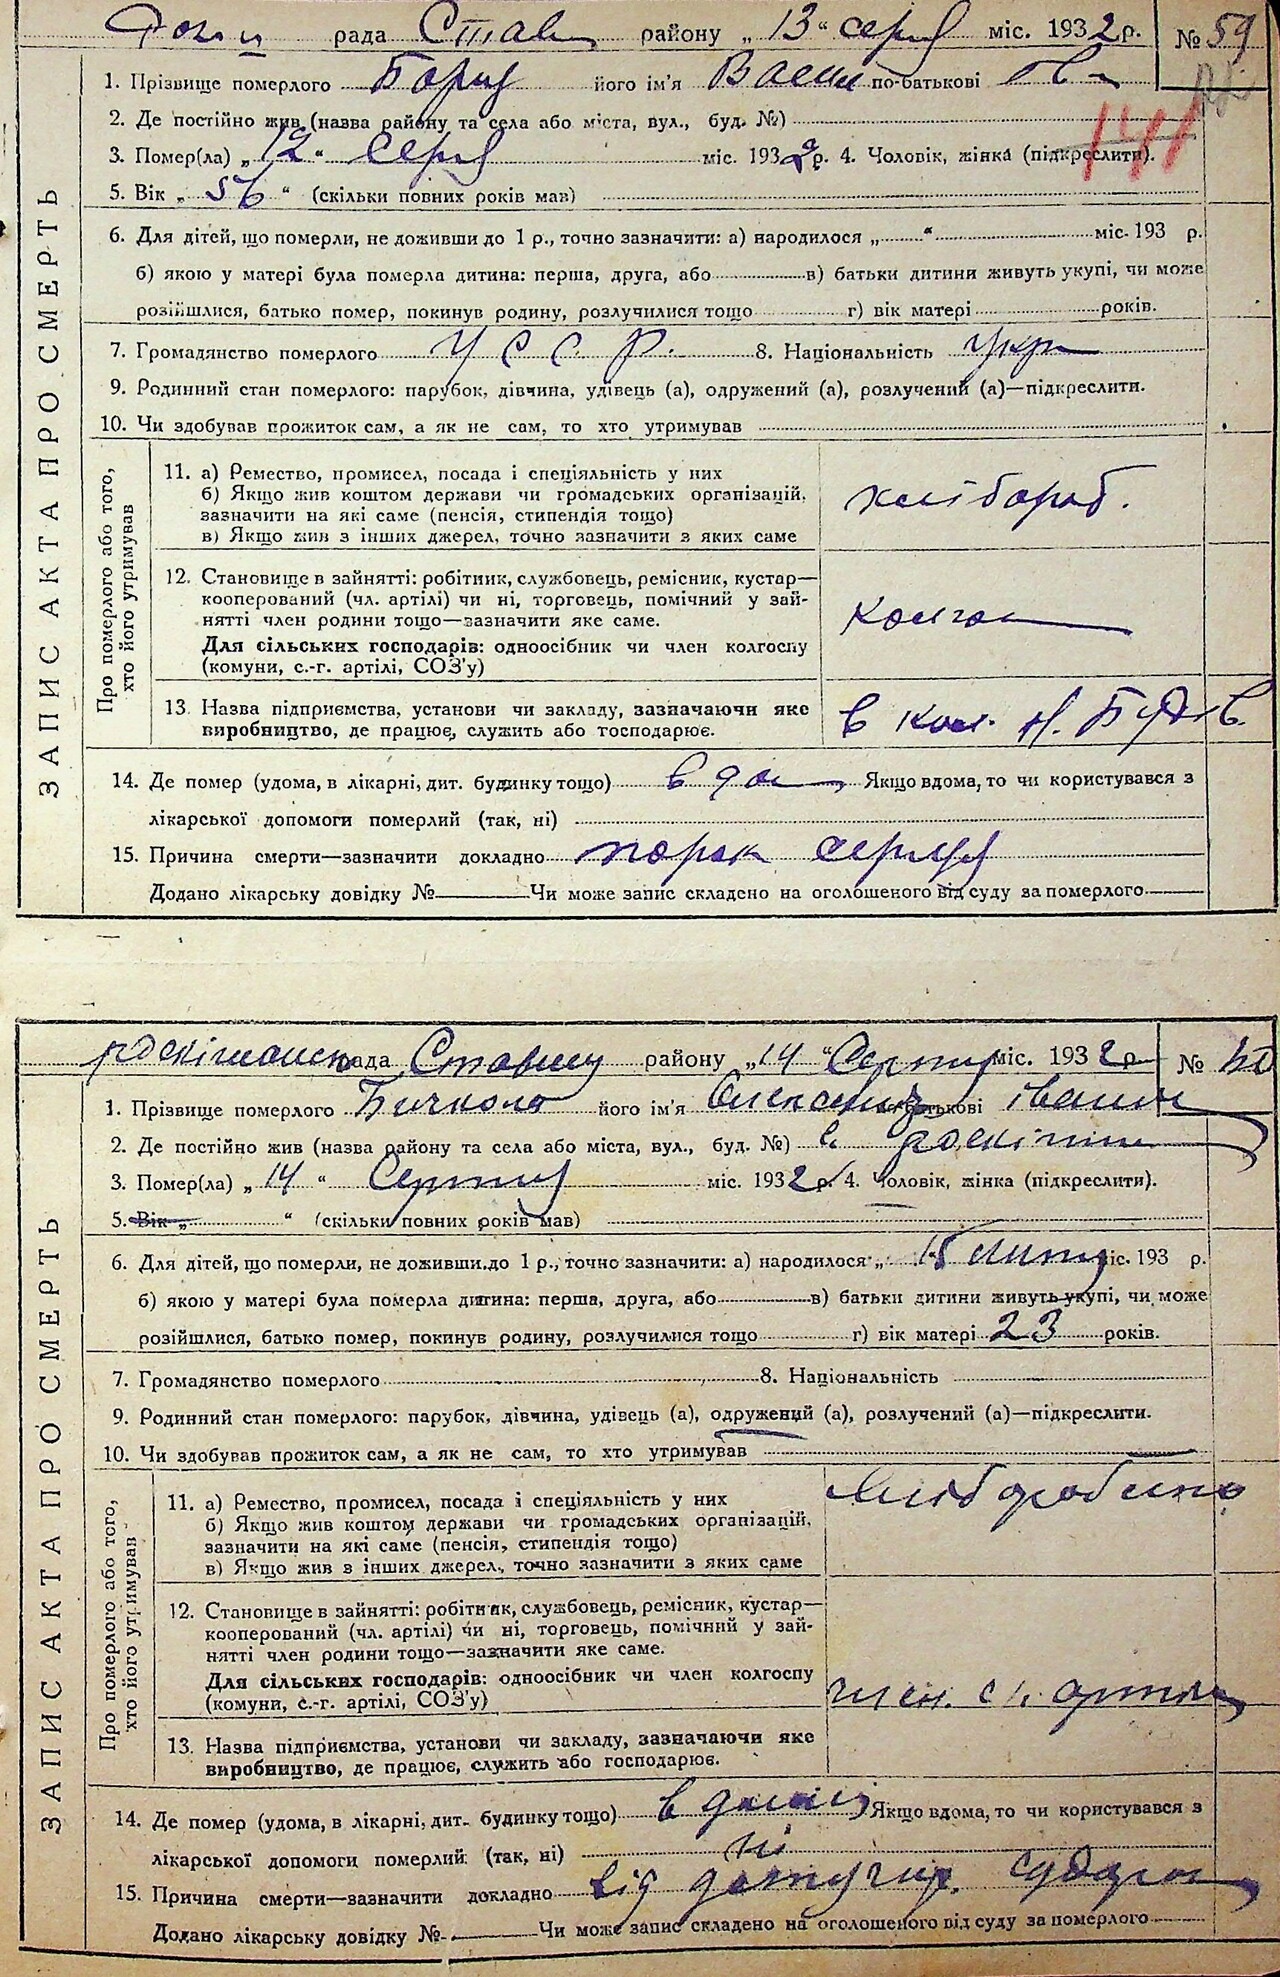 рада Став району „ 13 “ серп міс. 1932 р. № 59
1. Прізвище померлого його ім'я Васил по-батькові
2. Де постійно жив (назва району та села або міста, вул., буд. №)
3. Помер(ла) „ 12 “ серп міс. 1932 р. 4. Чоловік, жінка (підкреслити).
141
5. Вік „ 56 “ (скільки повних років мав)
6. Для дітей, що померли, не доживши до 1 р., точно зазначити: а) народилося „ “ міс. 193 р.
б) якою у матері була померла дитина: перша, друга, або в) батьки дитини живуть укупі, чи може
розійшлися, батько помер, покинув родину, розлучилися тощо г) вік матері років.
7. Громадянство померлого У С С Р. 8. Національність Укр
9. Родинний стан померлого: парубок, дівчина, удівець (а), одружений (а), розлучений (а)—підкреслити.
10. Чи здобував прожиток сам, а як не сам, то хто утримував
ЗАПИС АКТА ПРО СМЕРТЬ
Про померлого або того, хто його утримував
11. а) Ремество, промисел, посада і спеціяльність у них
б) Якщо жив коштом держави чи громадських організацій, зазначити на які саме (пенсія, стипендія тощо)
в) Якщо жив з інших джерел, точно зазначити з яких саме
хлібороб.
12. Становище в зайнятті: робітник, службовець, ремісник, кустар—
кооперований (чл. артілі) чи ні, торговець, помічний у зай-
нятті член родини тощо—зазначити яке саме.
Для сільських господарів: одноосібник чи член колгоспу
(комуни, с.-г. артілі, СОЗ'у)
колгос
13. Назва підприємства, установи чи закладу, зазначаючи яке
виробництво, де працює, служить або господарює.
в кол. Н. Буд-в.
14. Де помер (удома, в лікарні, дит. будинку тощо) в дом Якщо вдома, то чи користувався з
лікарської допомоги померлий (так, ні)
15. Причина смерти—зазначити докладно порок серця
Додано лікарську довідку № Чи може запис складено на оголошеного від суду за померлого
рада Ставищ району „ 14 “ Серпня міс. 1932 р. №
1. Прізвище померлого його ім'я Олександ по-батькові Іванов
2. Де постійно жив (назва району та села або міста, вул., буд. №) с.
3. Помер(ла) „ 14 “ Серпня міс. 1932 р. 4. Чоловік, жінка (підкреслити).
5. Вік „ “ (скільки повних років мав)
6. Для дітей, що померли, не доживши до 1 р., точно зазначити: а) народилося „ 15 лют міс. 193 р.
б) якою у матері була померла дитина: перша, друга, або в) батьки дитини живуть укупі, чи може
розійшлися, батько помер, покинув родину, розлучилися тощо г) вік матері 23 років.
7. Громадянство померлого 8. Національність
9. Родинний стан померлого: парубок, дівчина, удівець (а), одружений (а), розлучений (а)—підкреслити.
10. Чи здобував прожиток сам, а як не сам, то хто утримував
ЗАПИС АКТА ПРО СМЕРТЬ
Про померлого або того, хто його утримував
11. а) Ремество, промисел, посада і спеціяльність у них
б) Якщо жив коштом держави чи громадських організацій, зазначити на які саме (пенсія, стипендія тощо)
в) Якщо жив з інших джерел, точно зазначити з яких саме
12. Становище в зайнятті: робітник, службовець, ремісник, кустар—
кооперований (чл. артілі) чи ні, торговець, помічний у зай-
нятті член родини тощо—зазначити яке саме.
Для сільських господарів: одноосібник чи член колгоспу
(комуни, с.-г. артілі, СОЗ'у)
член. с г. артіли
13. Назва підприємства, установи чи закладу, зазначаючи яке
виробництво, де працює, служить або господарює.
14. Де помер (удома, в лікарні, дит. будинку тощо) в домі Якщо вдома, то чи користувався з
лікарської допомоги померлий (так, ні) ні
15. Причина смерти—зазначити докладно від судорог
Додано лікарську довідку № Чи може запис складено на оголошеного від суду за померлого